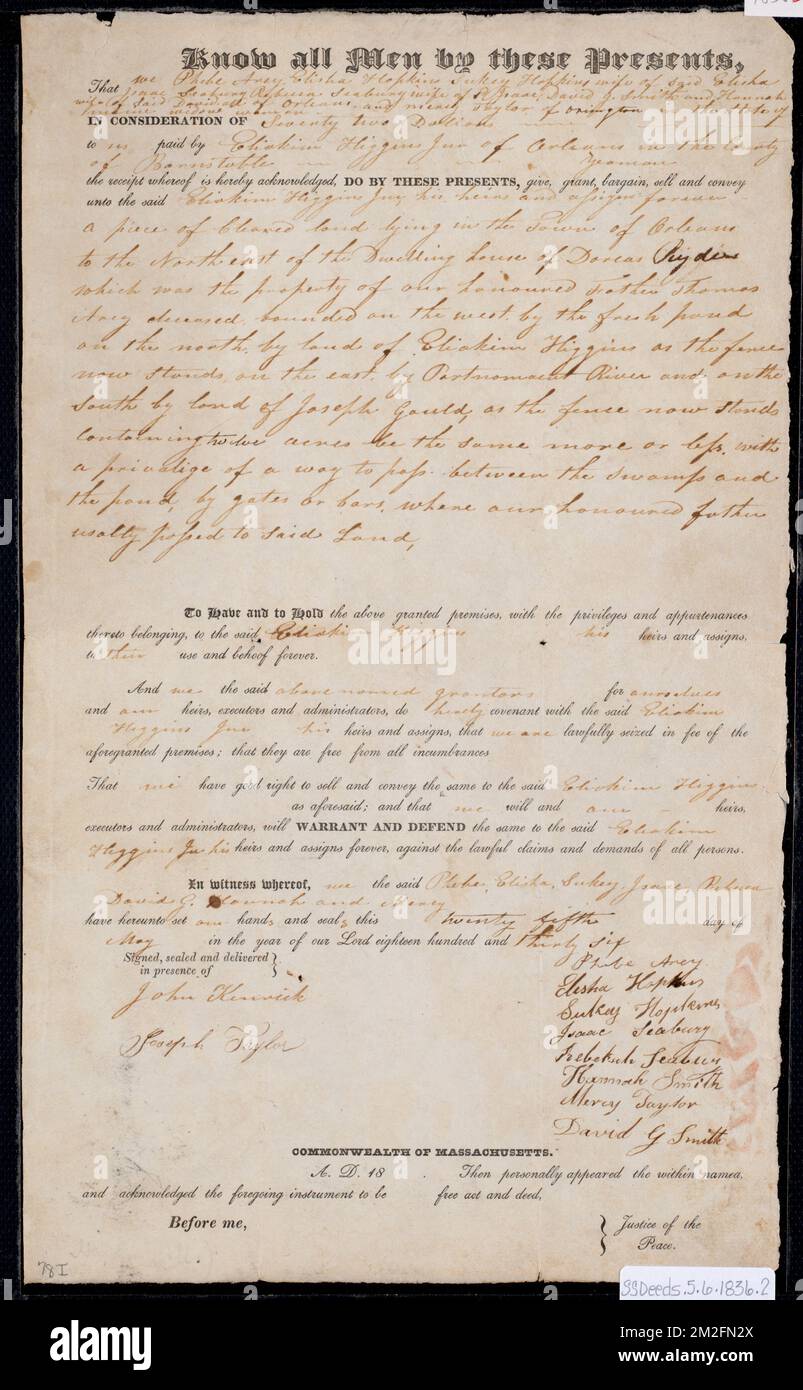 Know all Men by these Presents,
That we Phebe Arey, Elisha Hopkins Sukey Hopkins wife of said Elisha
Isaac Seabury Rebecca Seabury wife of Isaac, David G Smith and Hannah
wife of Said David all of Orleans and Mercy Taylor of Orington in the State of
widow woman
IN CONSIDERATION OF Seventy two Dollars
to us paid by Eliakim Higgins Jur of Orleans in the County
of Barnstable yeoman
the receipt whereof is hereby acknowledged, DO BY THESE PRESENTS, give, grant, bargain, sell and convey
unto the said Eliakim Higgins Jur his heirs and assigns forever
a piece of Cleared land lying in the Town of Orleans
to the North east of the Dwelling house of Dorcas Ryder
which was the property of our honoured Father Thomas
Arey deceased, bounded on the west by the fresh pond
on the north, by land of Eliakim Higgins as the fence
now stands, on the east, by Portnomacut River and on the
South by land of Joseph Gould, as the fence now stands
Containing twelve acres be the same more or less, with
a privalige of a way to pass between the swamp and
the pond, by gates or bars, where our honoured father
usally passed to said Land,
To Have and to Hold the above granted premises, with the privileges and appurtenances
thereto belonging, to the said Eliakim Higgins his heirs and assigns,
to their use and behoof forever.
And we the said above named grantors for ourselves
and our heirs, executors and administrators, do hereby covenant with the said Eliakim
Higgins Jur his heirs and assigns, that we are lawfully seized in fee of the
aforegranted premises; that they are free from all incumbrances
That we have good right to sell and convey the same to the said Eliakim Higgins
as aforesaid; and that we will and our heirs,
executors and administrators, will WARRANT AND DEFEND the same to the said Eliakim
Higgins Jur his heirs and assigns forever, against the lawful claims and demands of all persons.
In witness whereof, we the said Phebe, Elisha, Sukey, Isaac, Rebecca
David G. Hannah and Mercy
have hereunto set our hands and seals this twenty fifth day of
May in the year of our Lord eighteen hundred and thirty six
Signed, sealed and delivered
in presence of
John Kenrick
Joseph Taylor
Phebe Arey
Elisha Hopkins
Sukey Hopkins
Isaac Seabury
Rebekah Seabury
Hannah Smith
Mercy Taylor
David G Smith
COMMONWEALTH OF MASSACHUSETTS.
A. D. 18 . Then personally appeared the within named
and acknowledged the foregoing instrument to be free act and deed,
Before me,
Justice of the
Peace.
78I
SSDeeds.5.6.1836.2
alamy
Image ID: 2M2FN2X
www.alamy.com